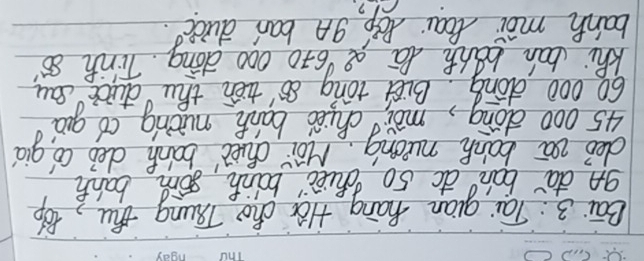 Thứ ngày
Bài 3: Tại gian hàng Hội chợ Trung thu, lớp
9A đã bán đc 50 chiếc bánh gồm bánh
dẻo và bánh nướng. Mỗi chiếc bánh dẻo có giá
45 000 đồng, mỗi chiếc bánh nướng có giá
60 000 đồng. Biết tổng số tiền thu được sau
khi bán bánh là 2 670 000 đồng. Tính số
bánh mỗi loại lớp 9A bán được.